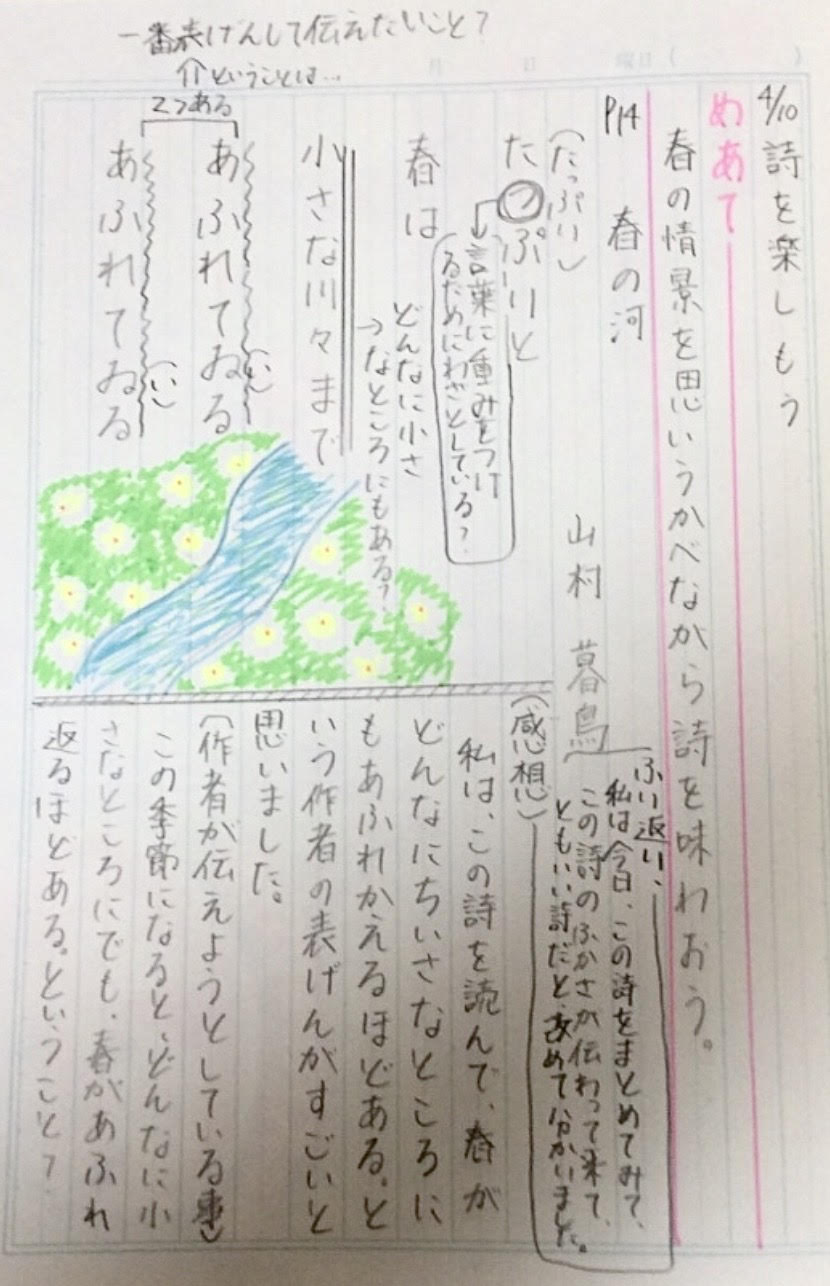 4/10 詩を楽しもう
めあて
春の情景を思いうかべながら詩を味わおう。
P14 春の河
山村 暮鳥
(たっぷり)
たつぷりと
言葉に重みをつけ
るためにわざとしている?
春は
どんなに小さ
→なところにもある?
小さな川々まで
一番表げんして伝えたいこと?
ということは…
2つある
あふれてゐる
(い)
あふれてゐる
(い)
ふり返り、
私は今日、この詩をまとめてみて、
この詩のふかさが伝わって来て、
ともいい詩だと、改めて分かいました。
(感想)
私は、この詩を読んで、春が
どんなにちいさなところに
もあふれかえるほどある。と
いう作者の表げんがすごいと
思いました。
(作者が伝えようとしている事)
この季節になると、どんなに小
さなところにでも、春があふれ
返るほどある。ということ?